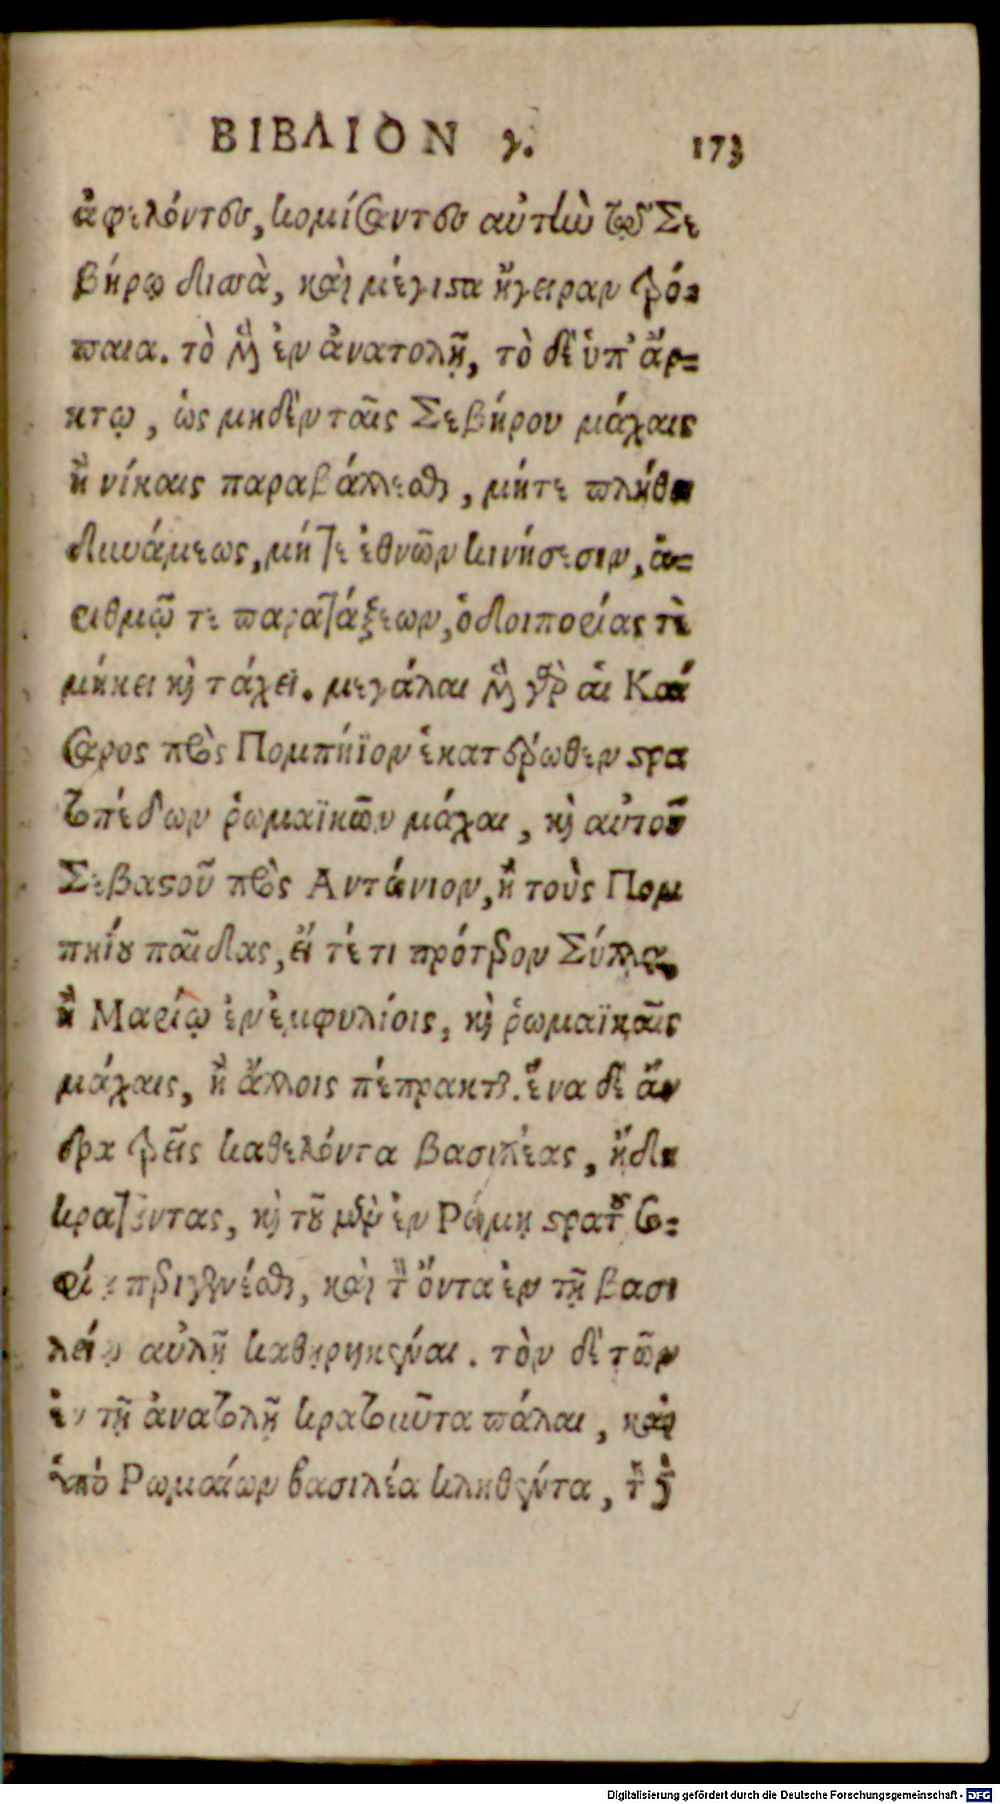 ΒΙΒΛΙΟΝ γ. 173
ἀφελόντες, κομίσαντες αὐτὼ τῷ Σε
βήρῳ δισσὰ, καὶ μέγιστα ἤγειραν τρό=
παια. τὸ μὲν ἐν ἀνατολῇ, τὸ δὲ ὑπ' ἄρ=
κτῳ, ὡς μηδὲν ταῖς Σεβήρου μάχαις
ἢ νίκαις παραβάλλεσθαι, μήτε πλήθει
δυνάμεως, μήτε ἐθνῶν κινήσεσιν, ἀ=
ριθμῷ τε παρατάξεων, ὁδοιπορίας τὲ
μήκει καὶ τάχει. μεγάλαι μὲν γὰρ αἱ Καί
σαρος πρὸς Πομπήϊον ἑκατέρωθεν στρα
τοπέδων ῥωμαϊκῶν μάχαι, καὶ αὐτοῦ
Σεβαστοῦ πρὸς Αντώνιον, ἢ τοὺς Πομ
πηίου παῖδας, εἴ τέ τι πρότερον Σύλλᾳ
ἢ Μαρίῳ ἐν ἐμφυλίοις, καὶ ῥωμαϊκαῖς
μάχαις, ἢ ἄλλοις πέπρακται. ἕνα δὲ ἄν
δρα τρεῖς καθελόντα βασιλέας, ἤδη
κρατοῦντας, καὶ τοῦ μὲν ἐν Ρώμῃ στρατοῦ σο=
φίᾳ περιγενέσθαι, καὶ τὸν ὄντα ἐν τῇ βασι
λείῳ αὐλῇ καθῃρηκέναι. τὸν δὲ τῶν
ἐν τῇ ἀνατολῇ κρατοῦντα πάλαι, καὶ
ὑπὸ Ρωμαίων βασιλέα κληθέντα, τὸν δὲ
Digitalisierung gefördert durch die Deutsche Forschungsgemeinschaft - DFG